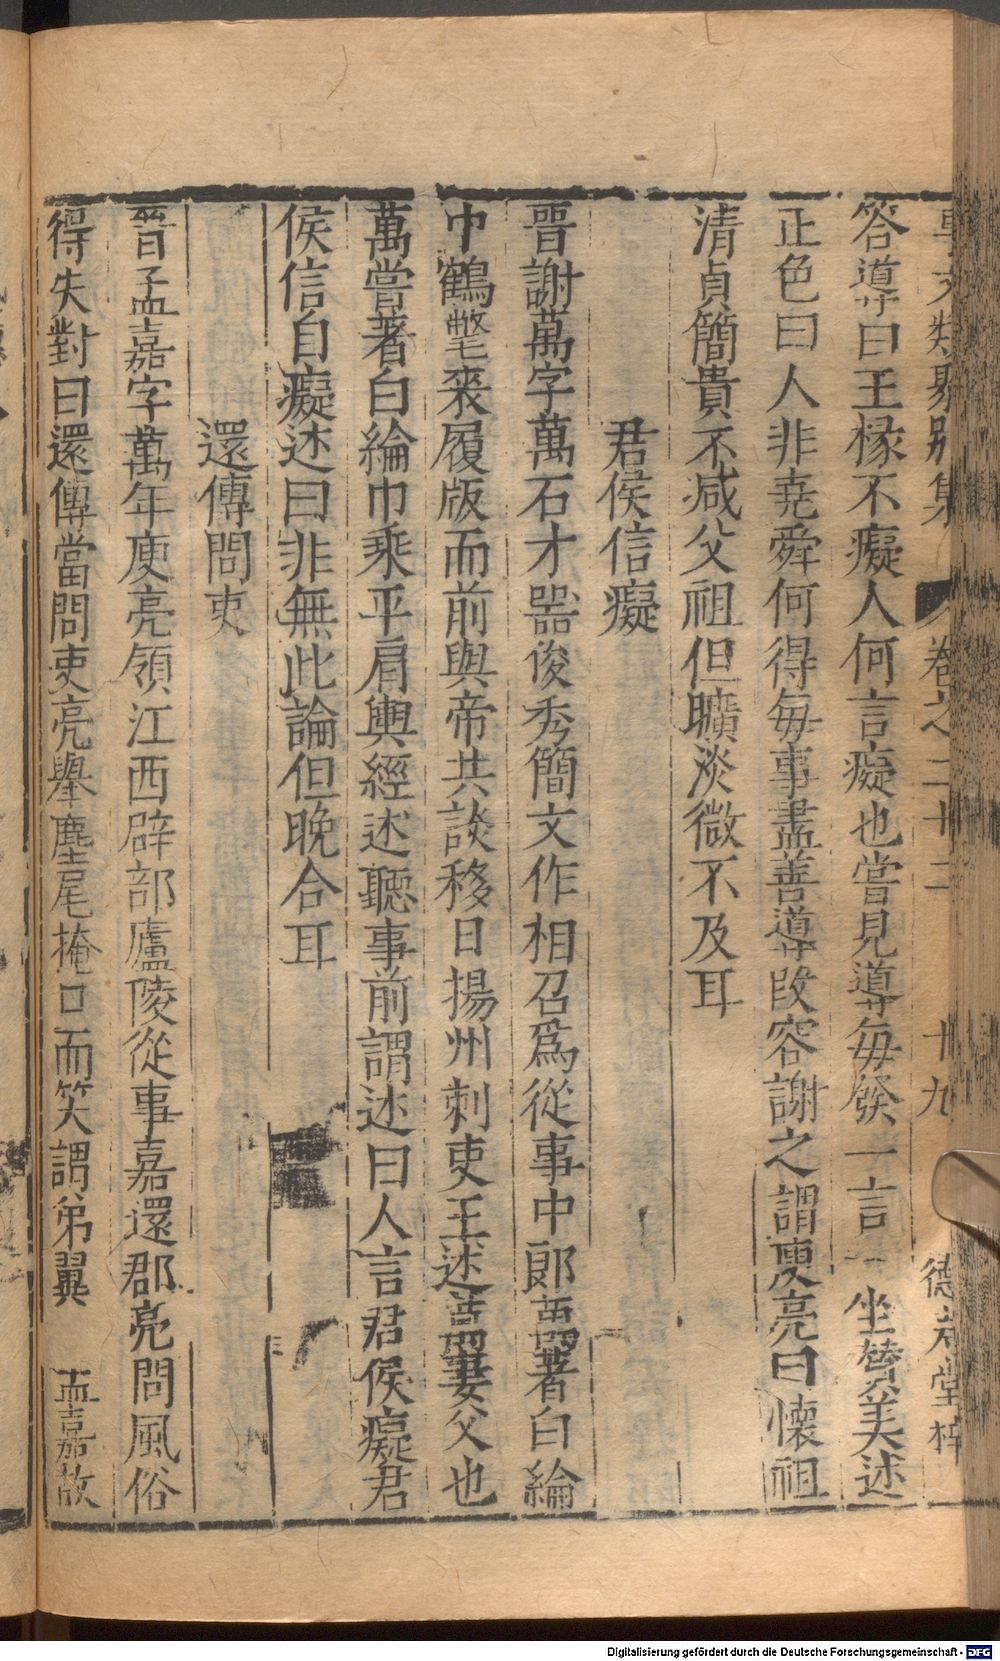 事文類聚別集 卷之二十二 十九 德壽堂梓
答導曰王椽不癡人何言癡也嘗見導每發一言一坐贊美述
正色曰人非堯舜何得每事盡善導改容謝之謂庾亮曰懷祖
清貞簡貴不减父祖但曠淡微不及耳
君侯信癡
晋謝萬字萬石才器俊秀簡文作相召爲從事中郎萬著白綸
巾鶴氅裘履版而前與帝共談移日揚州刺吏王述萬妻父也
萬嘗著白綸巾乘平肩輿經述聽事前謂述曰人言君侯癡君
侯信自癡述曰非無此論但晚合耳
還傳問吏
晉孟嘉字萬年庾亮領江西辟部廬陵從事嘉還郡亮問風俗
得失對曰還傳當問吏亮舉麈尾掩口而笑謂弟翼 孟嘉故
Digitalisierung gefördert durch die Deutsche Forschungsgemeinschaft - DFG